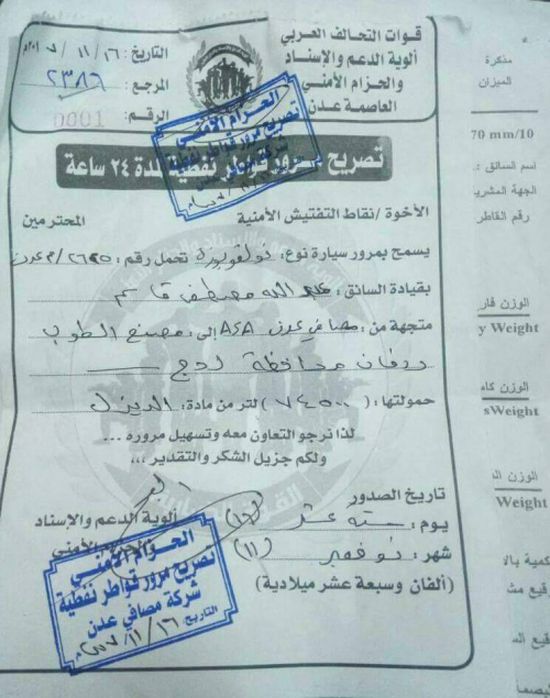 قوات التحالف العربي
ألوية الدعم والإسناد
والحزام الأمني
العاصمة عدن
التاريخ: ١٦ / ١١ / ٢٠١٧م
المرجع: ٢٣٨٦
الرقم: 0001
الحزام الأمني
تصريح مرور قواطر نفطية
شركة مصافي عدن
تصريح مرور قواطر نفطية لمدة ٢٤ ساعة
الأخوة / نقاط التفتيش الأمنية المحترمين
يسمح بمرور سيارة نوع: تحمل رقم: عدن
بقيادة السائق: عبد الله مصطفى قاسم
متجهة من: مصافي عدن إلى: مصنع الطوب
ردفان محافظة لحج
حمولتها: ( ) لتر من مادة: الديزل
لذا نرجو التعاون معه وتسهيل مروره ...
ولكم جزيل الشكر والتقدير ,,,
تاريخ الصدور
يوم: ستة عشر (١٦)
شهر: نوفمبر (١١)
(ألفان وسبعة عشر ميلادية)
ألوية الدعم والإسناد
الأمني
الحزام الأمني
تصريح مرور قواطر نفطية
شركة مصافي عدن
التاريخ: ١٦ / ١١ / ٢٠١٧م
مذكرة
الميزان
70 mm/10
اسم السائق :
الجهة المشتري
رقم القاطر
الوزن فار
y Weight
الوزن كام
sWeight
الوزن ال
Weight
كمية بالا
قيع مش
قيع الس